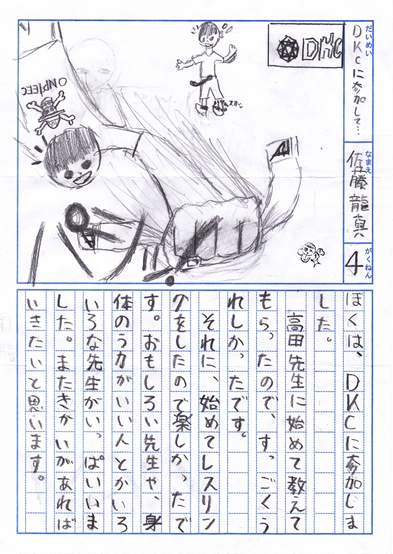 だいめい
DKCに参加して…
なまえ
佐藤龍真
がくねん
4
DKC
ONPIEEC
ぼくは、DKCに参加しま
した。
高田先生に始めて教えて
もらったので、すっごくう
れしかったです。
それに、始めてレスリン
グをしたので楽しかったで
す。おもしろい先生や、身
体のう力がいい人とかいろ
いろな先生がいっぱいいま
した。またきかいがあれば
いきたいと思います。